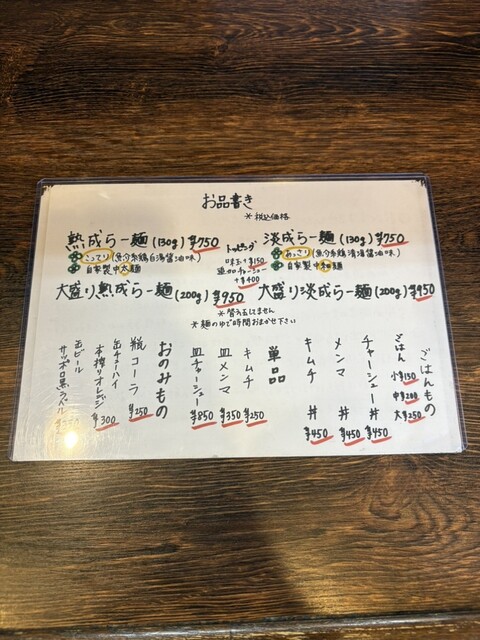 お品書き
＊税込価格
熟成らー麺(130g) ¥750
こってり(魚介系鶏白湯醤油味)
自家製中太麺
トッピング
味玉+¥150
追加チャーシュー
+¥400
淡成らー麺(130g) ¥750
あっさり(魚介系鶏清湯醤油味)
自家製中細麺
大盛り熟成らー麺(200g) ¥950
大盛り淡成らー麺(200g) ¥950
＊替え玉はしてません
＊麺のゆで時間おまかせ下さい
ごはんもの
ごはん 小¥150
中¥200
大¥250
チャーシュー丼 ¥450
メンマ丼 ¥450
キムチ丼 ¥450
単品
キムチ ¥250
皿メンマ ¥350
皿チャーシュー ¥850
おのみもの
瓶コーラ ¥250
缶チューハイ
本搾りオレンジ ¥300
缶ビール
サッポロ黒ラベル